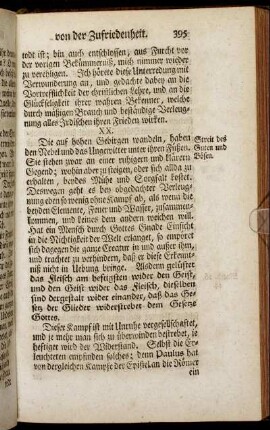 von der Zufriedenheit. 395
todt ist; bin auch entschlossen, aus Furcht vor
der vorigen Bekümmernuß, mich nimmer wieder
zu verehligen. Ich hörete diese Unterredung mit
Verwunderung an, und gedachte dabey an die
Vortrefflichkeit der christlichen Lehre, und an die
Glückseligkeit ihrer wahren Bekenner, welche
durch mäßigen Brauch und beständige Verleug-
nung alles Irdischen ihren Frieden wirken.
XX.
Die auf hohen Gebirgen wandeln, haben
den Nebel und das Ungewitter unter ihren Füßen.
Sie stehen zwar an einer ruhigern und klärern
Gegend; wohin aber zu steigen, oder sich allda zu
erhalten, beydes Mühe und Sorgfalt kostet.
Deswegen geht es bey obgedachter Verleug-
nung eben so wenig ohne Kampf ab, als wenn die
beyden Elemente, Feuer und Wasser, zusammen-
kommen, und keines dem andern weichen will.
Hat ein Mensch durch Gottes Gnade Einsicht
in die Nichtigkeit der Welt erlanget, so empört
sich dagegen die ganze Creatur in und außer ihm,
und trachtet zu verhindern, daß er diese Erkennt-
niß nicht in Uebung bringe. Alsdenn gelüstet
das Fleisch am heftigsten wider den Geist,
und den Geist wider das Fleisch, dieselben
sind dergestalt wider einander, daß das Ge-
setz der Glieder widerstrebet dem Gesetze
Gottes.
Streit des
Guten und
Bösen.
Dieser Kampf ist mit Unruhe vergesellschaftet,
und je mehr man sich zu überwinden bestrebet, je
heftiger wird der Widerstand. Selbst die Er-
leuchteten empfinden solches; denn Paulus hat
von dergleichen Kampfe der Epistel an die Römer
ein